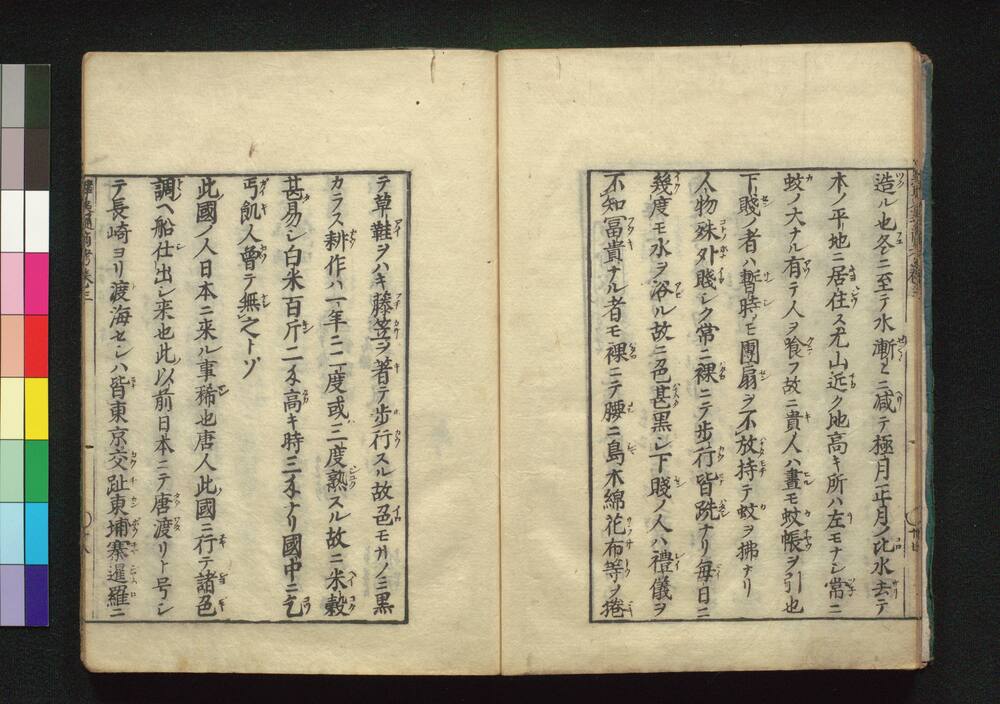 造ル也冬ニ至テ水漸々ニ減テ極月正月ノ比水去テ
木ノ平地ニ居住ス尤山近ク地高キ所ハ左モナシ常ニ
蚊ノ大ナル有テ人ヲ喰フ故ニ貴人ハ晝モ蚊帳ヲ引也
下賤ノ者ハ暫時モ團扇ヲ不放持テ蚊ヲ拂ナリ
人物殊外賤シク常ニ裸ニテ歩行皆跣ナリ毎日ニ
幾度モ水ヲ浴ル故ニ色甚黒シ下賤ノ人ハ禮儀ヲ
不知冨貴ナル者モ裸ニテ腰ニ島木綿花布等ノ捲
テ草鞋ヲハキ藤笠ヲ著テ歩行スル故色モサノミ黒
カラス耕作ハ一年ニ二度或三度熟スル故ニ米穀
甚易シ白米百斤二匁高キ時三匁ナリ國中ニ乞
丐飢人曽テ無之トソ
此國ノ人日本ニ来ル事稀也唐人此國ニ行テ諸色
調ヘ船仕出シ来也此以前日本ニテ唐渡リト号シ
テ長崎ヨリ渡海セシハ皆東京交趾東埔寨暹羅ニ